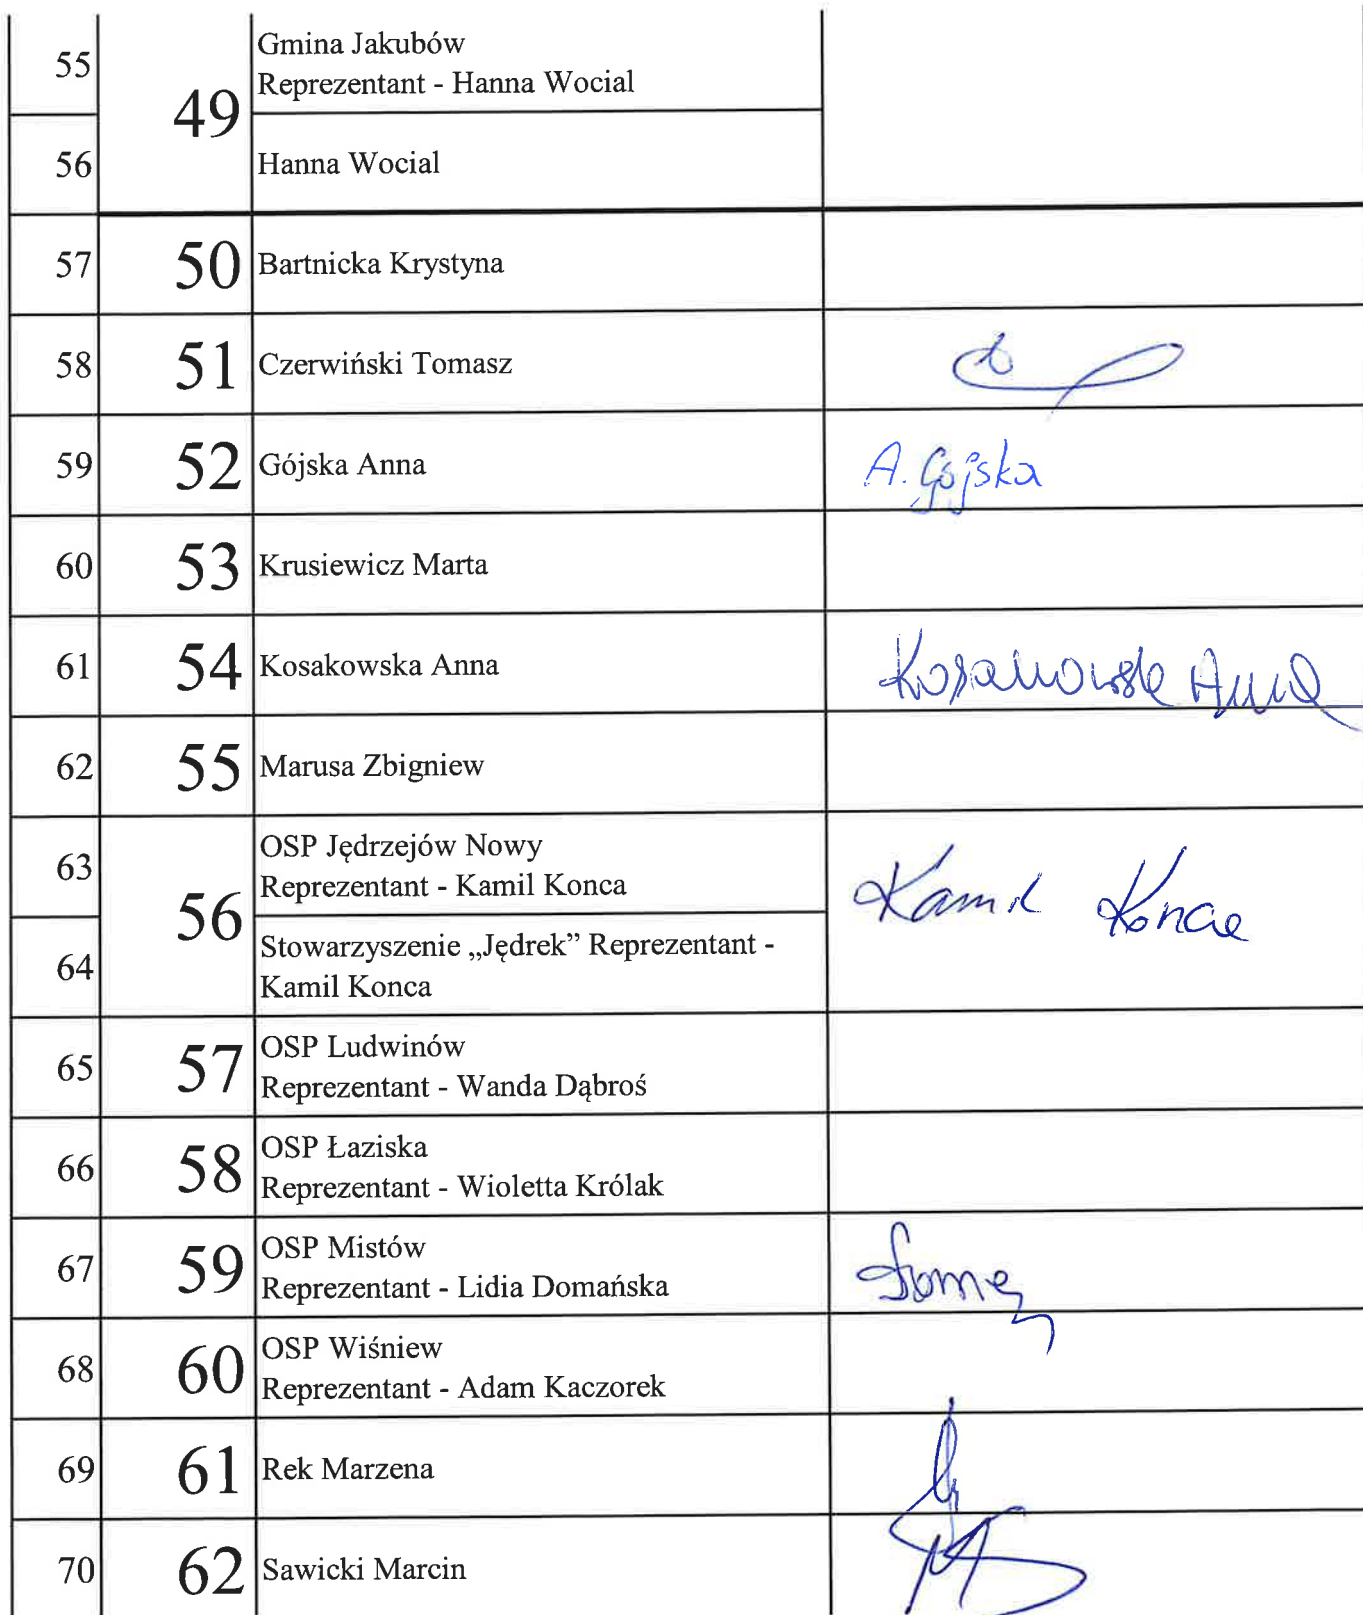 55
49
Gmina Jakubów
Reprezentant - Hanna Wocial
56
Hanna Wocial
57 50 Bartnicka Krystyna
58 51 Czerwiński Tomasz
59 52 Gójska Anna A. Gójska
60 53 Krusiewicz Marta
61 54 Kosakowska Anna Kosakowska Anna
62 55 Marusa Zbigniew
63
56
OSP Jędrzejów Nowy
Reprezentant - Kamil Konca
Kamil Konca
64
Stowarzyszenie „Jędrek” Reprezentant -
Kamil Konca
65 57 OSP Ludwinów
Reprezentant - Wanda Dąbroś
66 58 OSP Łaziska
Reprezentant - Wioletta Królak
67 59 OSP Mistów
Reprezentant - Lidia Domańska
68 60 OSP Wiśniew
Reprezentant - Adam Kaczorek
69 61 Rek Marzena
70 62 Sawicki Marcin